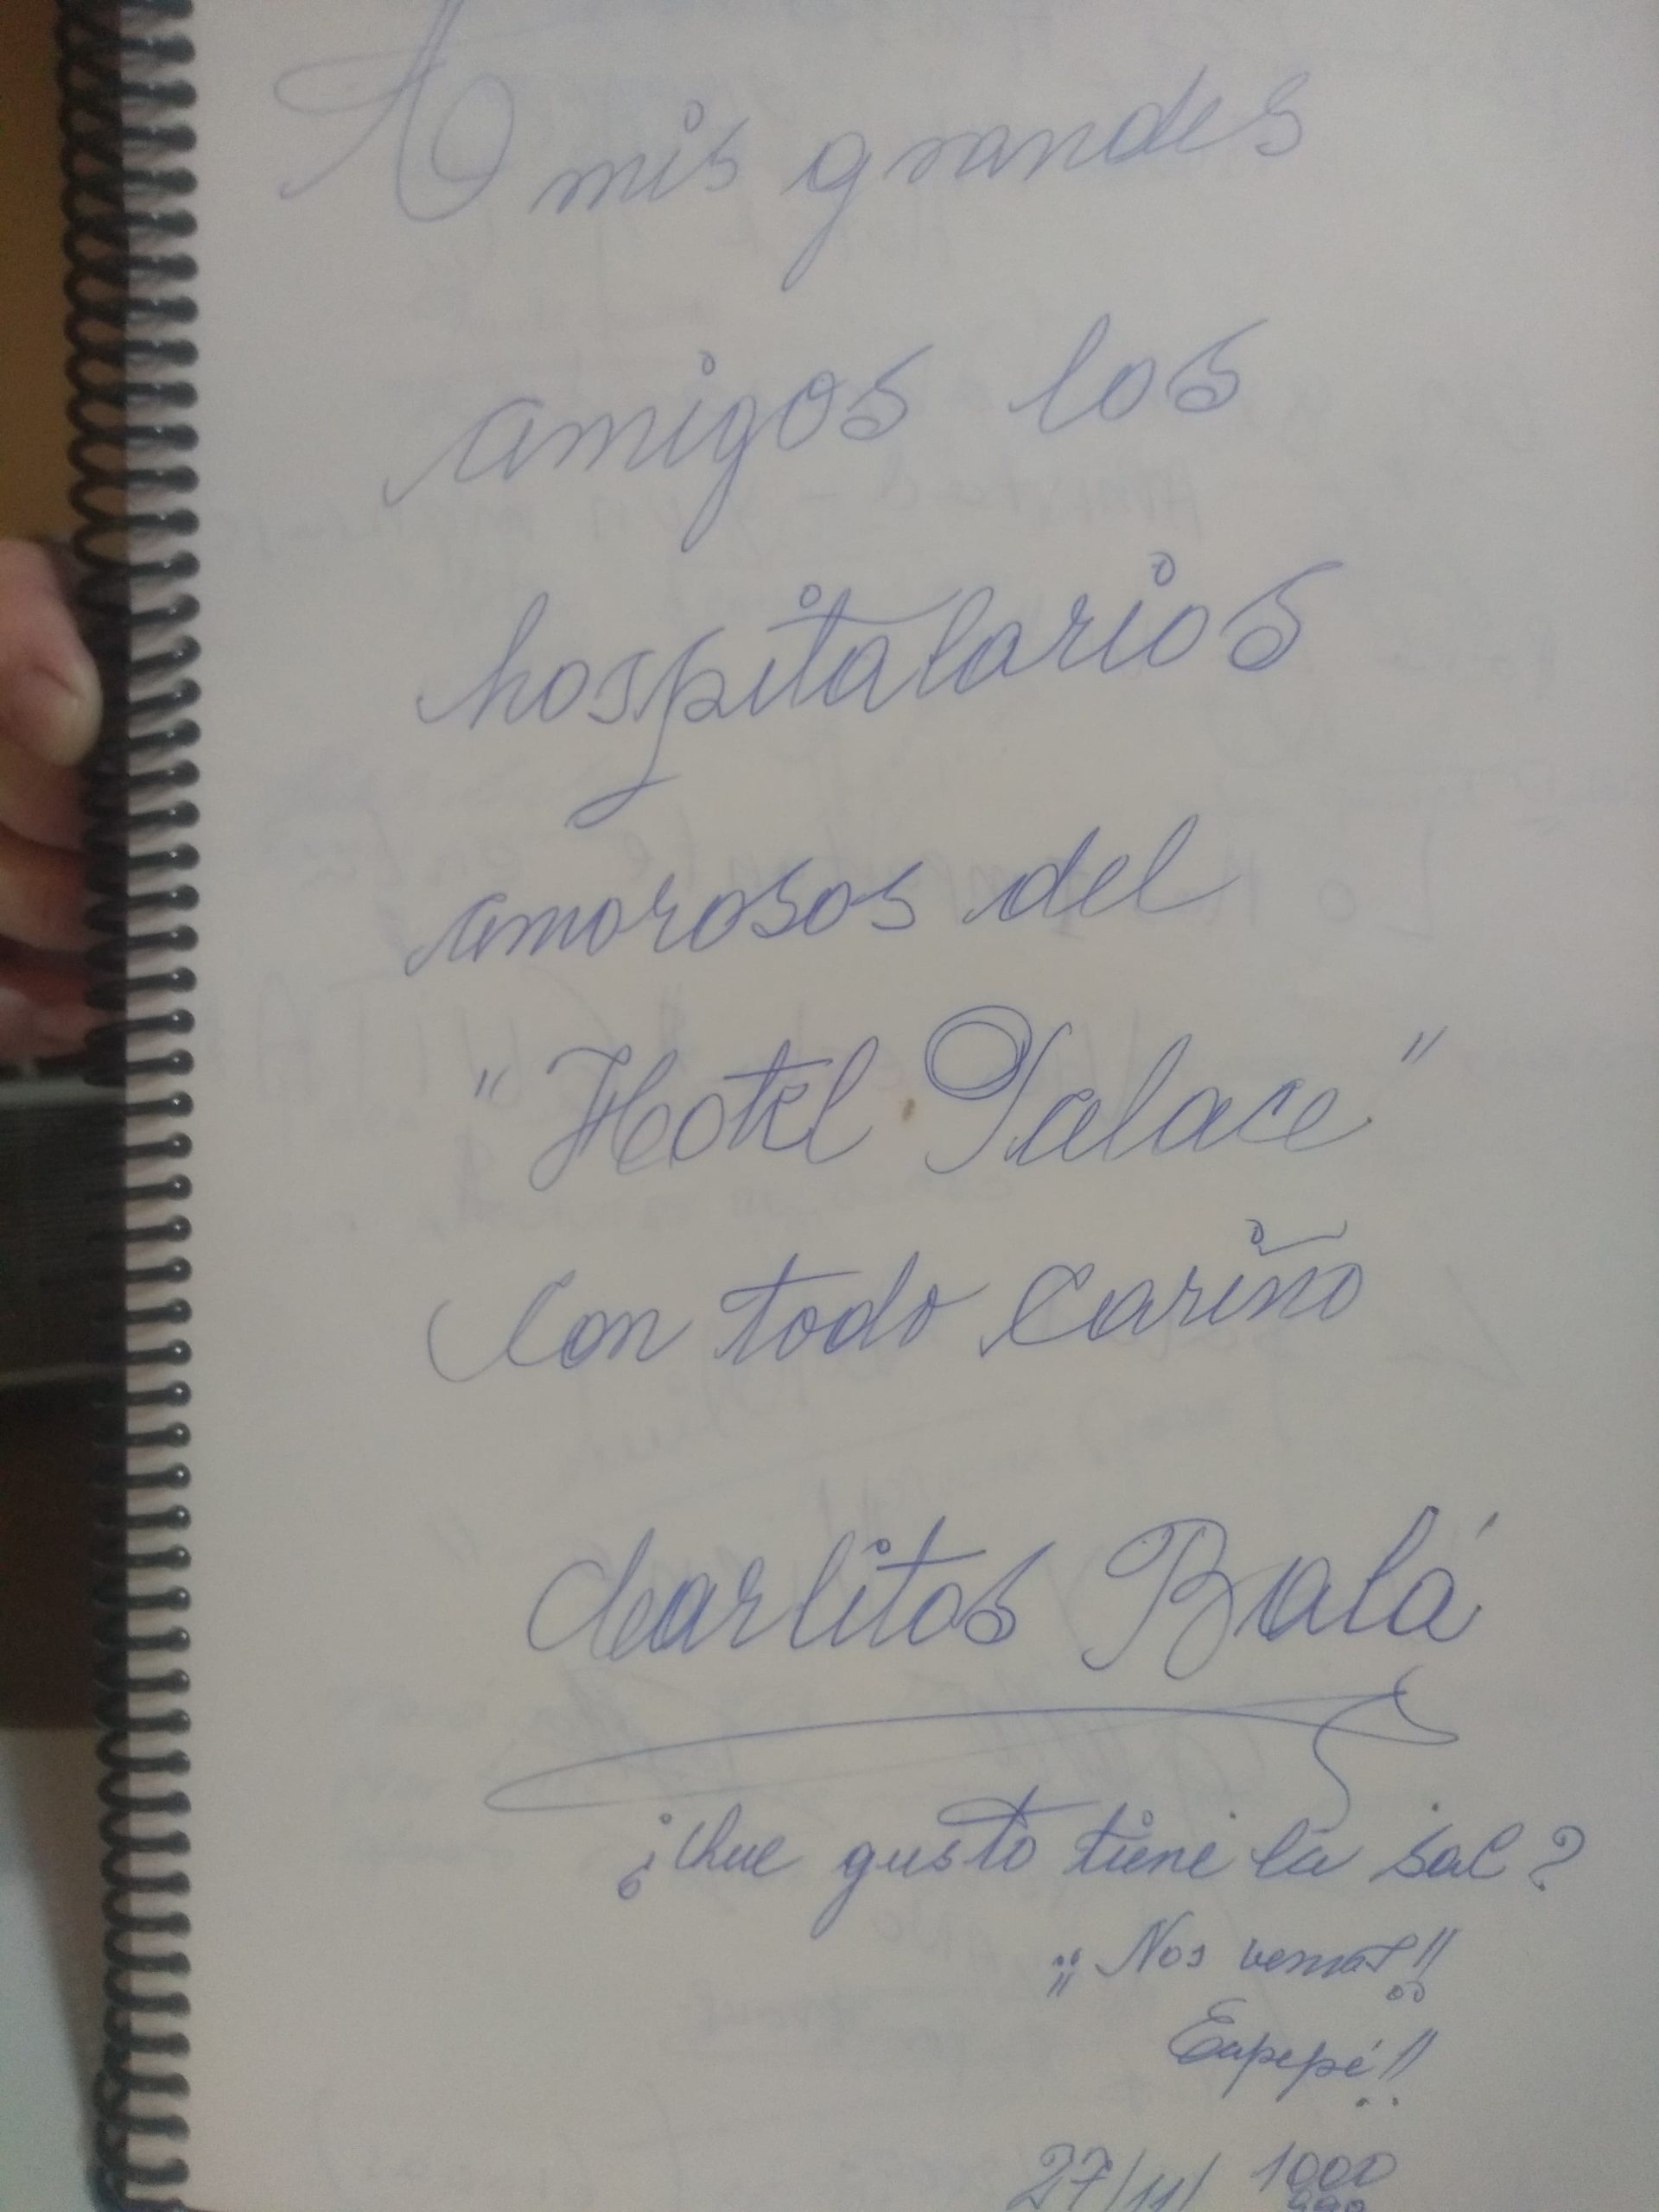 A mis grandes
amigos los
hospitalarios
amorosos del
"Hotel Palace"
Con todo cariño
Carlitos Balá
¿Que gusto tiene la sal?
¡¡Nos vemos!!
Eapepé!!
27/11/ 1000